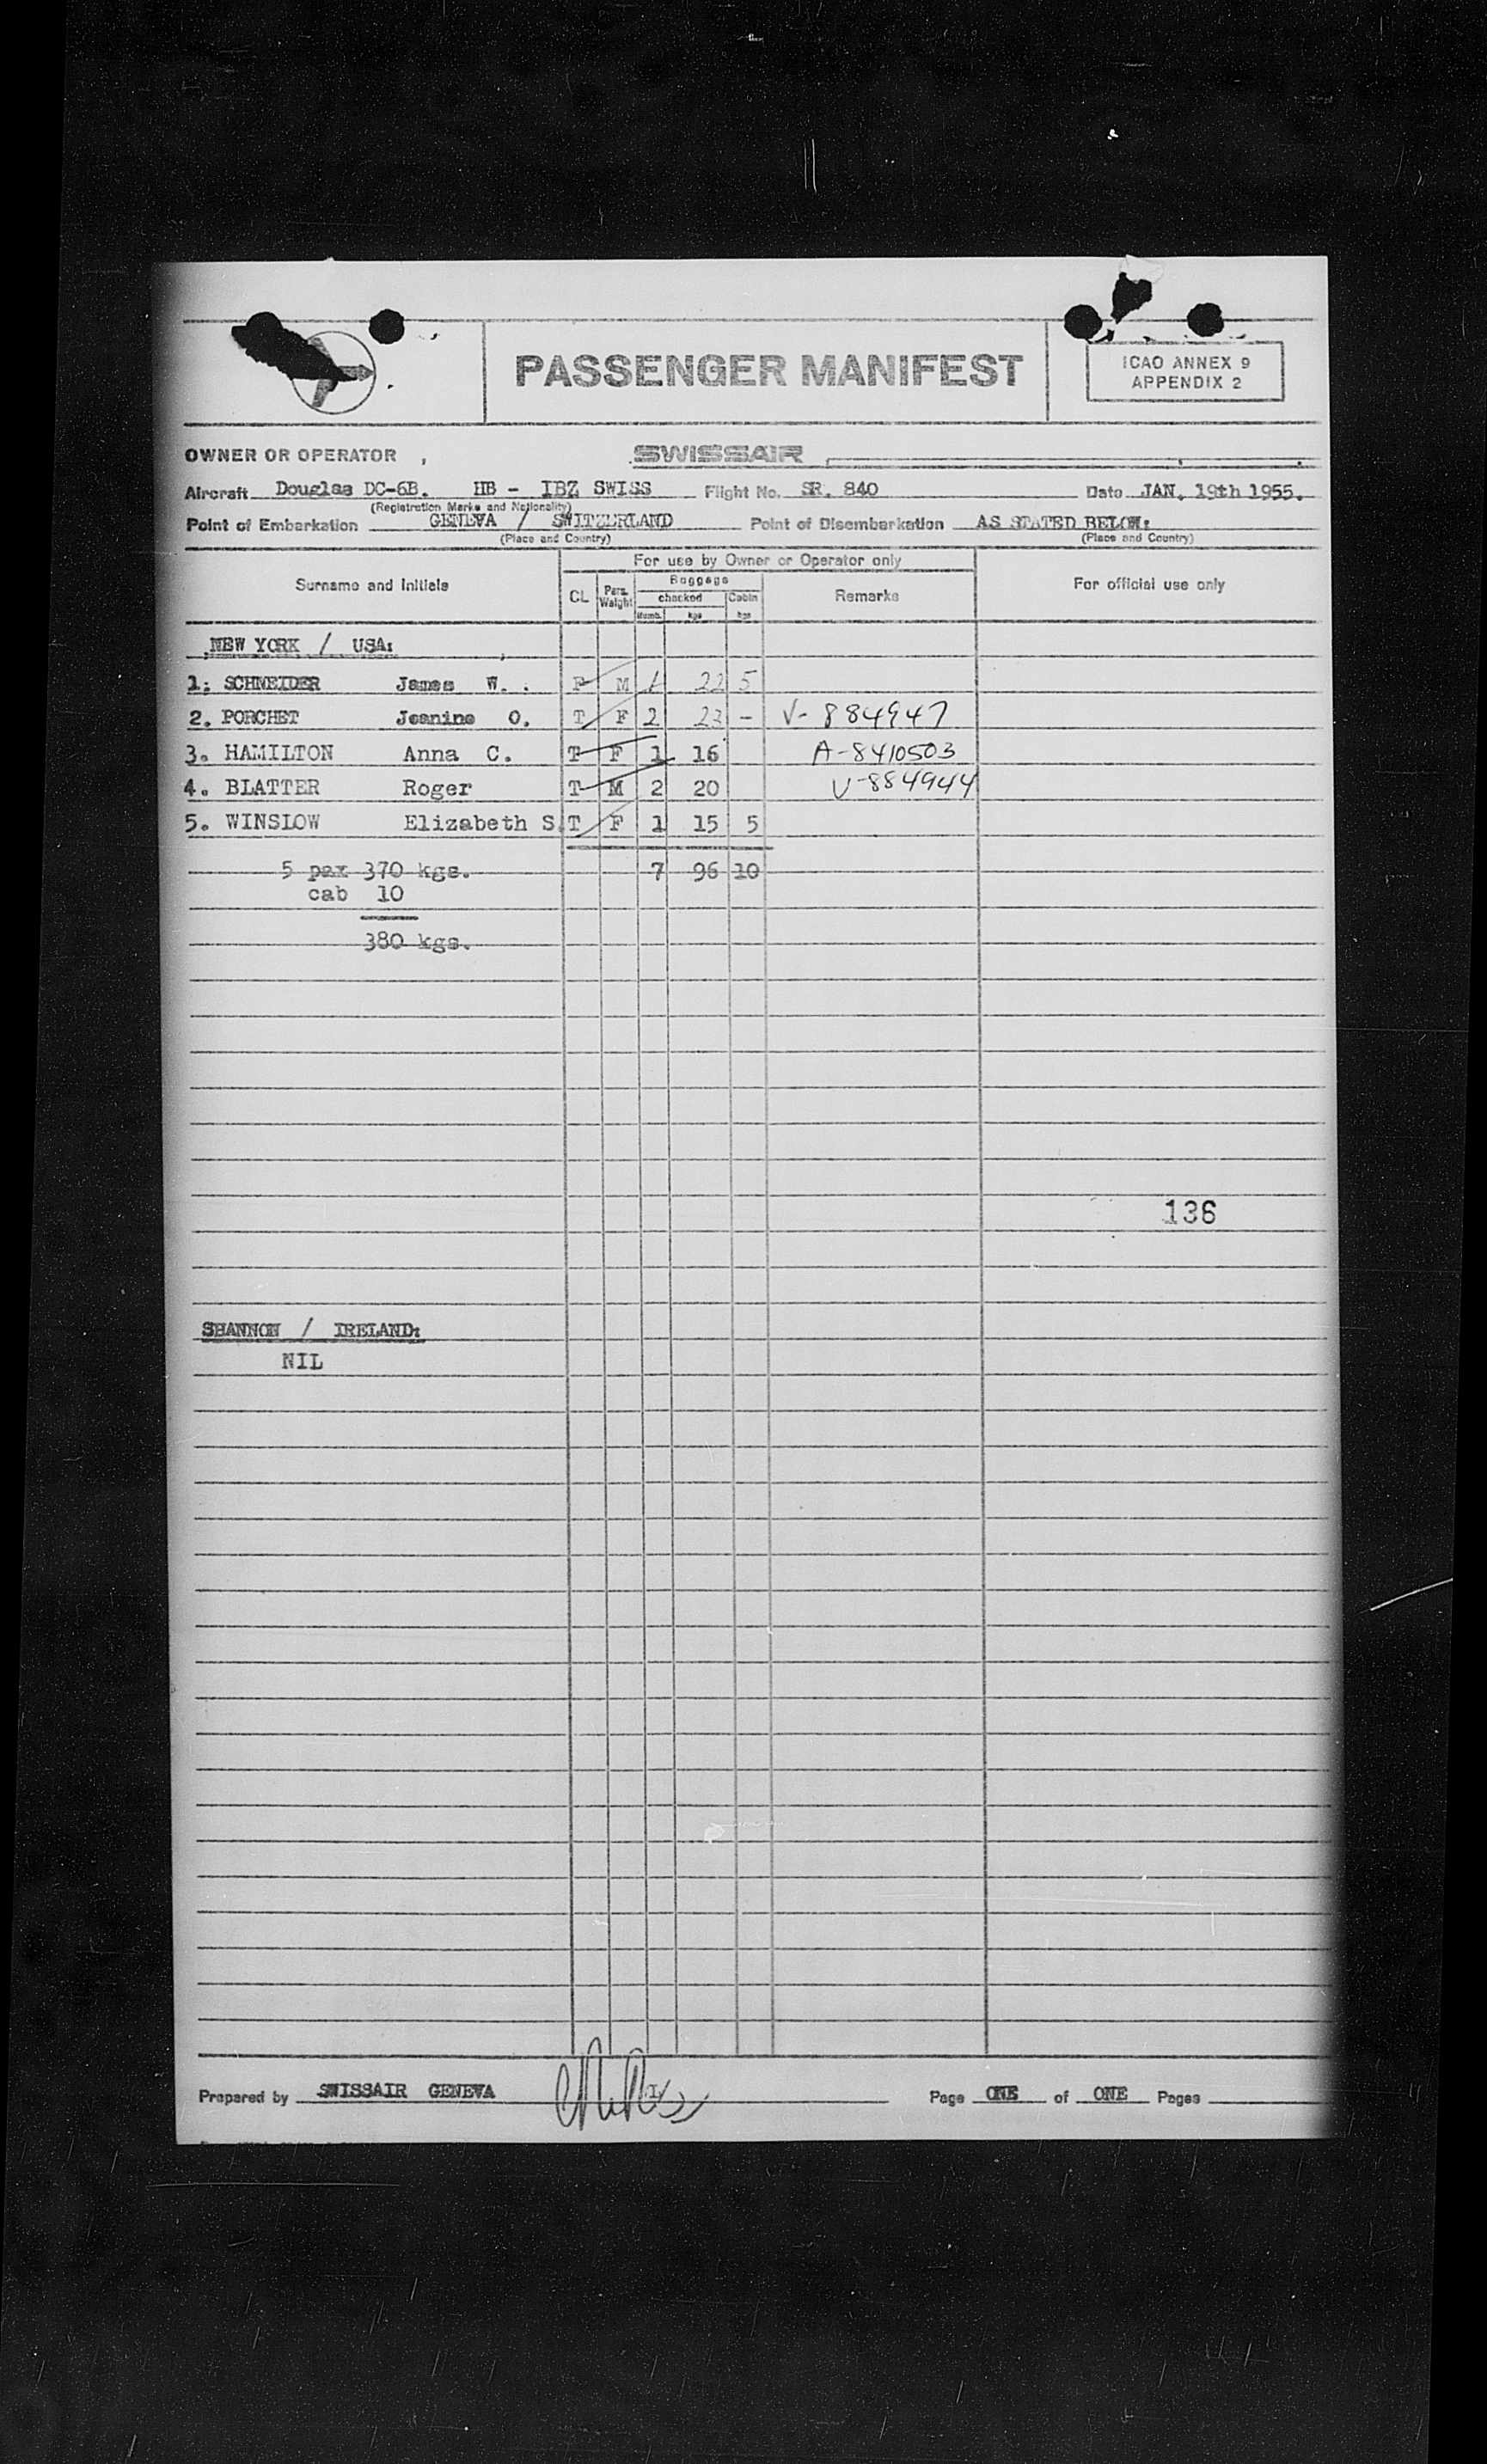 PASSENGER MANIFEST
ICAO ANNEX 9
APPENDIX 2
OWNER OR OPERATOR SWISSAIR
Aircraft Douglas DC-6B. HB - IBZ SWISS Flight No. SR. 840 Date JAN. 19th 1955.
(Registration Marks and Nationality)
Point of Embarkation GENEVA / SWITZERLAND Point of Disembarkation AS STATED BELOW:
(Place and Country) (Place and Country)
For use by Owner or Operator only
Surname and Initials CL Pers. Weight Baggage Remarks For official use only
checked Cabin
Numb. kgs kgs
NEW YORK / USA:
1. SCHNEIDER James W. F M 1 22 5
2. PORCHET Jeanine O. T F 2 23 - V-884947
3. HAMILTON Anna C. T F 1 16 A-8410503
4. BLATTER Roger T M 2 20 V-884944
5. WINSLOW Elizabeth S. T F 1 15 5
5 pax 370 kgs. 7 96 10
cab 10
380 kgs.
136
SHANNON / IRELAND:
NIL
Prepared by SWISSAIR GENEVA Page ONE of ONE Pages